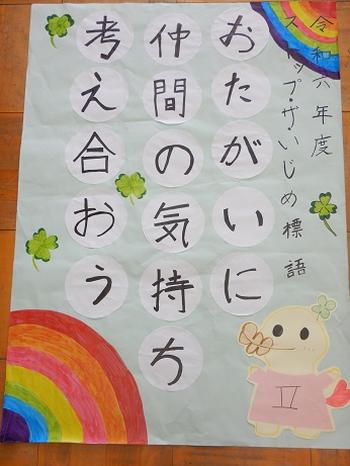 令和六年度
ストップ・ザ・いじめ標語
おたがいに
仲間の気持ち
考え合おう
IV